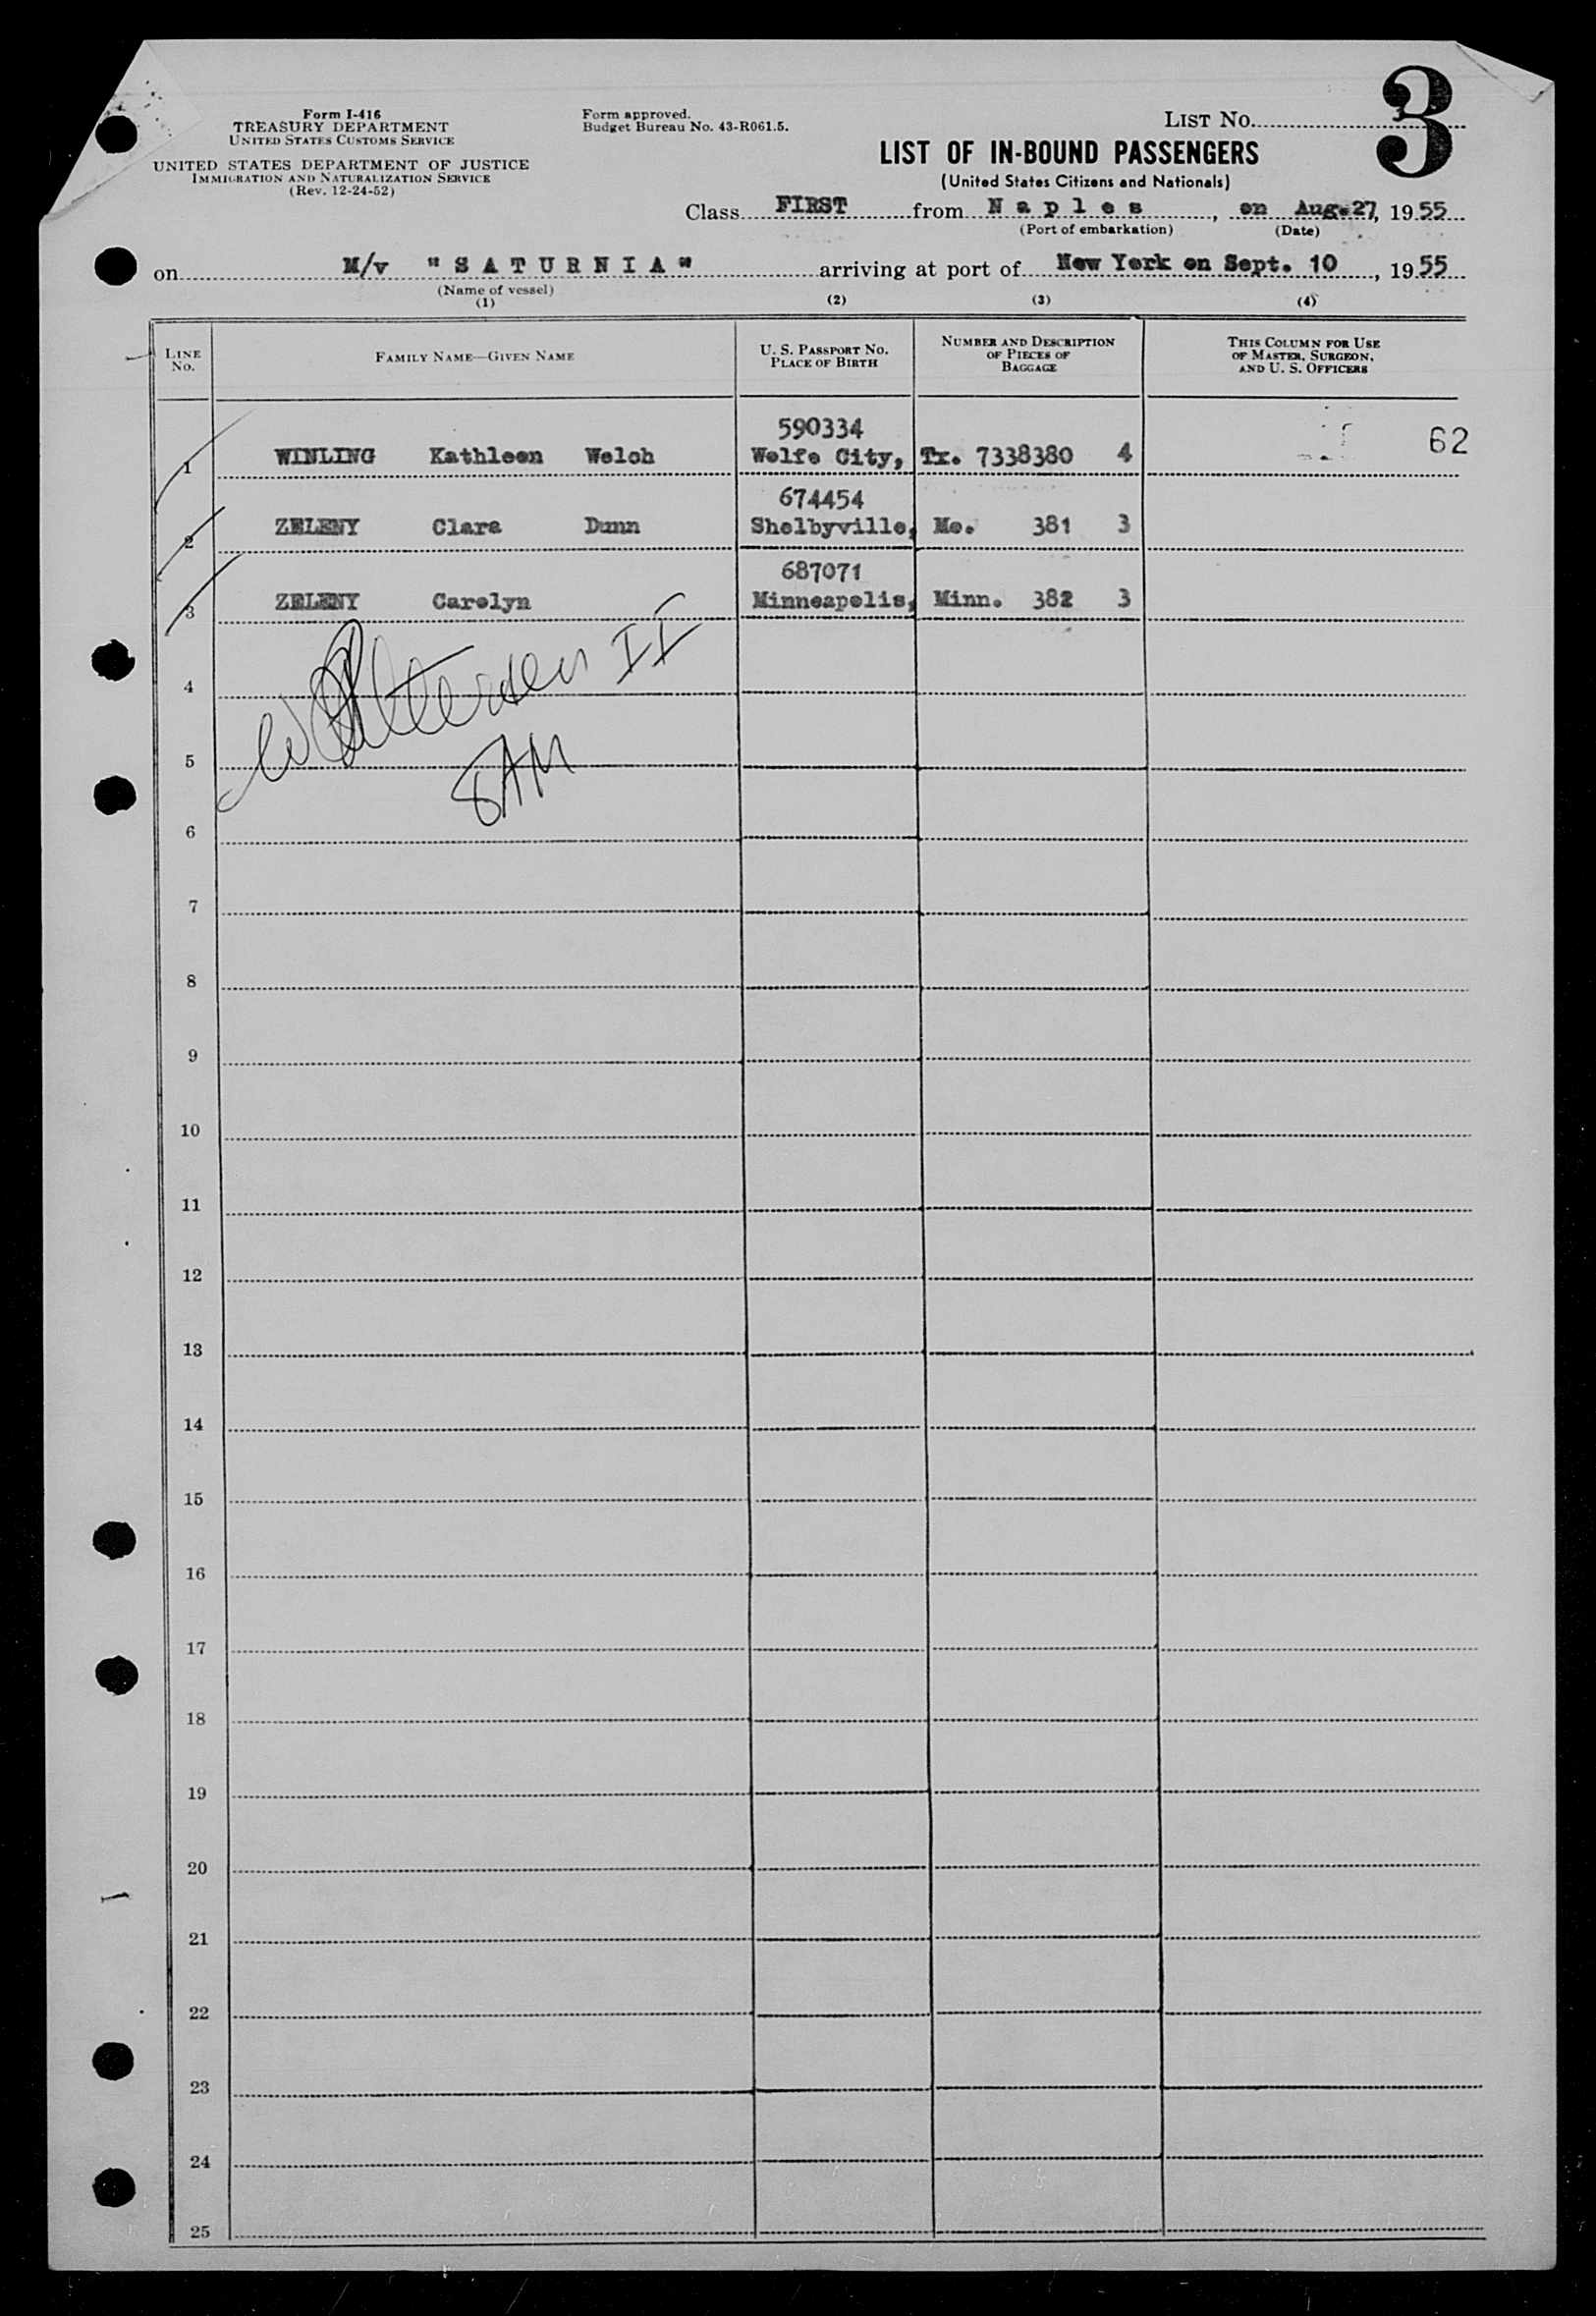 Form I-416
TREASURY DEPARTMENT
UNITED STATES CUSTOMS SERVICE
UNITED STATES DEPARTMENT OF JUSTICE
IMMIGRATION AND NATURALIZATION SERVICE
(Rev. 12-24-52)
Form approved.
Budget Bureau No. 43-R061.5.
LIST No. 3
LIST OF IN-BOUND PASSENGERS
(United States Citizens and Nationals)
Class FIRST from Naples, on Aug. 27, 1955
(Port of embarkation) (Date)
on M/v "SATURNIA" arriving at port of New York on Sept. 10, 1955
(Name of vessel)
(1) (2) (3) (4)
LINE No. FAMILY NAME—GIVEN NAME U. S. PASSPORT No. PLACE OF BIRTH NUMBER AND DESCRIPTION OF PIECES OF BAGGAGE THIS COLUMN FOR USE OF MASTER, SURGEON, AND U. S. OFFICERS
590334 62
1 WINLING Kathleen Welch Wolfe City, Tx. 7338380 4
674454
2 ZELENY Clara Dunn Shelbyville, Mo. 381 3
687071
3 ZELENY Carolyn Minneapolis, Minn. 382 3
II
4
5
6
7
8
9
10
11
12
13
14
15
16
17
18
19
20
21
22
23
24
25